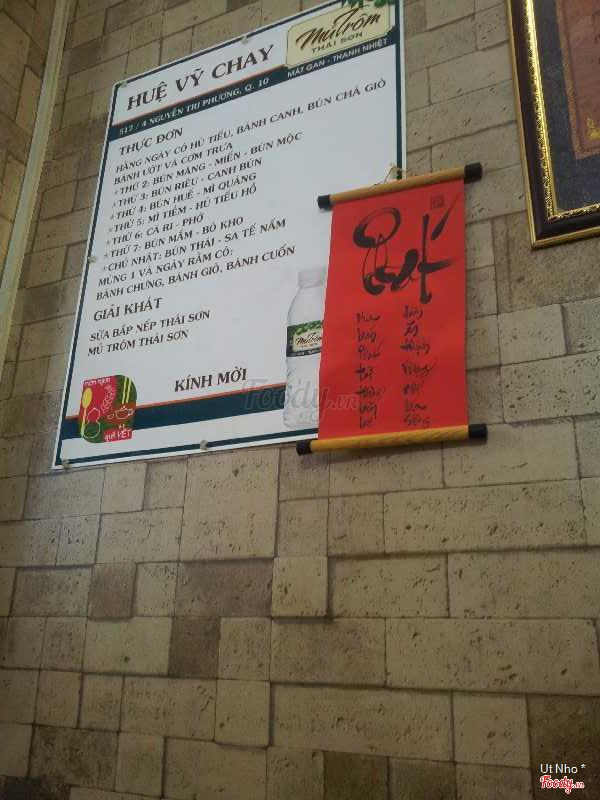 HUỆ VỸ CHAY
Mủ Trôm
THÁI SƠN
MÁT GAN - THANH NHIỆT
517 / 4 NGUYỄN TRI PHƯƠNG, Q. 10
THỰC ĐƠN
HÀNG NGÀY CÓ HỦ TIẾU, BÁNH CANH, BÚN CHẢ GIÒ
BÁNH ƯỚT VÀ CƠM TRƯA
★THỨ 2: BÚN MĂNG - MIẾN - BÚN MỘC
★THỨ 3: BÚN RIÊU - CANH BÚN
★THỨ 4: BÚN HUẾ - MÌ QUẢNG
★THỨ 5: MÌ TIỀM - HỦ TIẾU HỒ
★THỨ 6: CÀ RI - PHỞ
★THỨ 7: BÚN MẮM - BÒ KHO
★CHỦ NHẬT: BÚN THÁI - SA TẾ NẤM
MÙNG 1 VÀ NGÀY RẰM CÓ:
BÁNH CHƯNG, BÁNH GIÒ, BÁNH CUỐN
GIẢI KHÁT
SỮA BẮP NẾP THÁI SƠN
MỦ TRÔM THÁI SƠN
KÍNH MỜI
Mủ Trôm
Phật
Foody.vn
Ut Nho *
Foody.vn